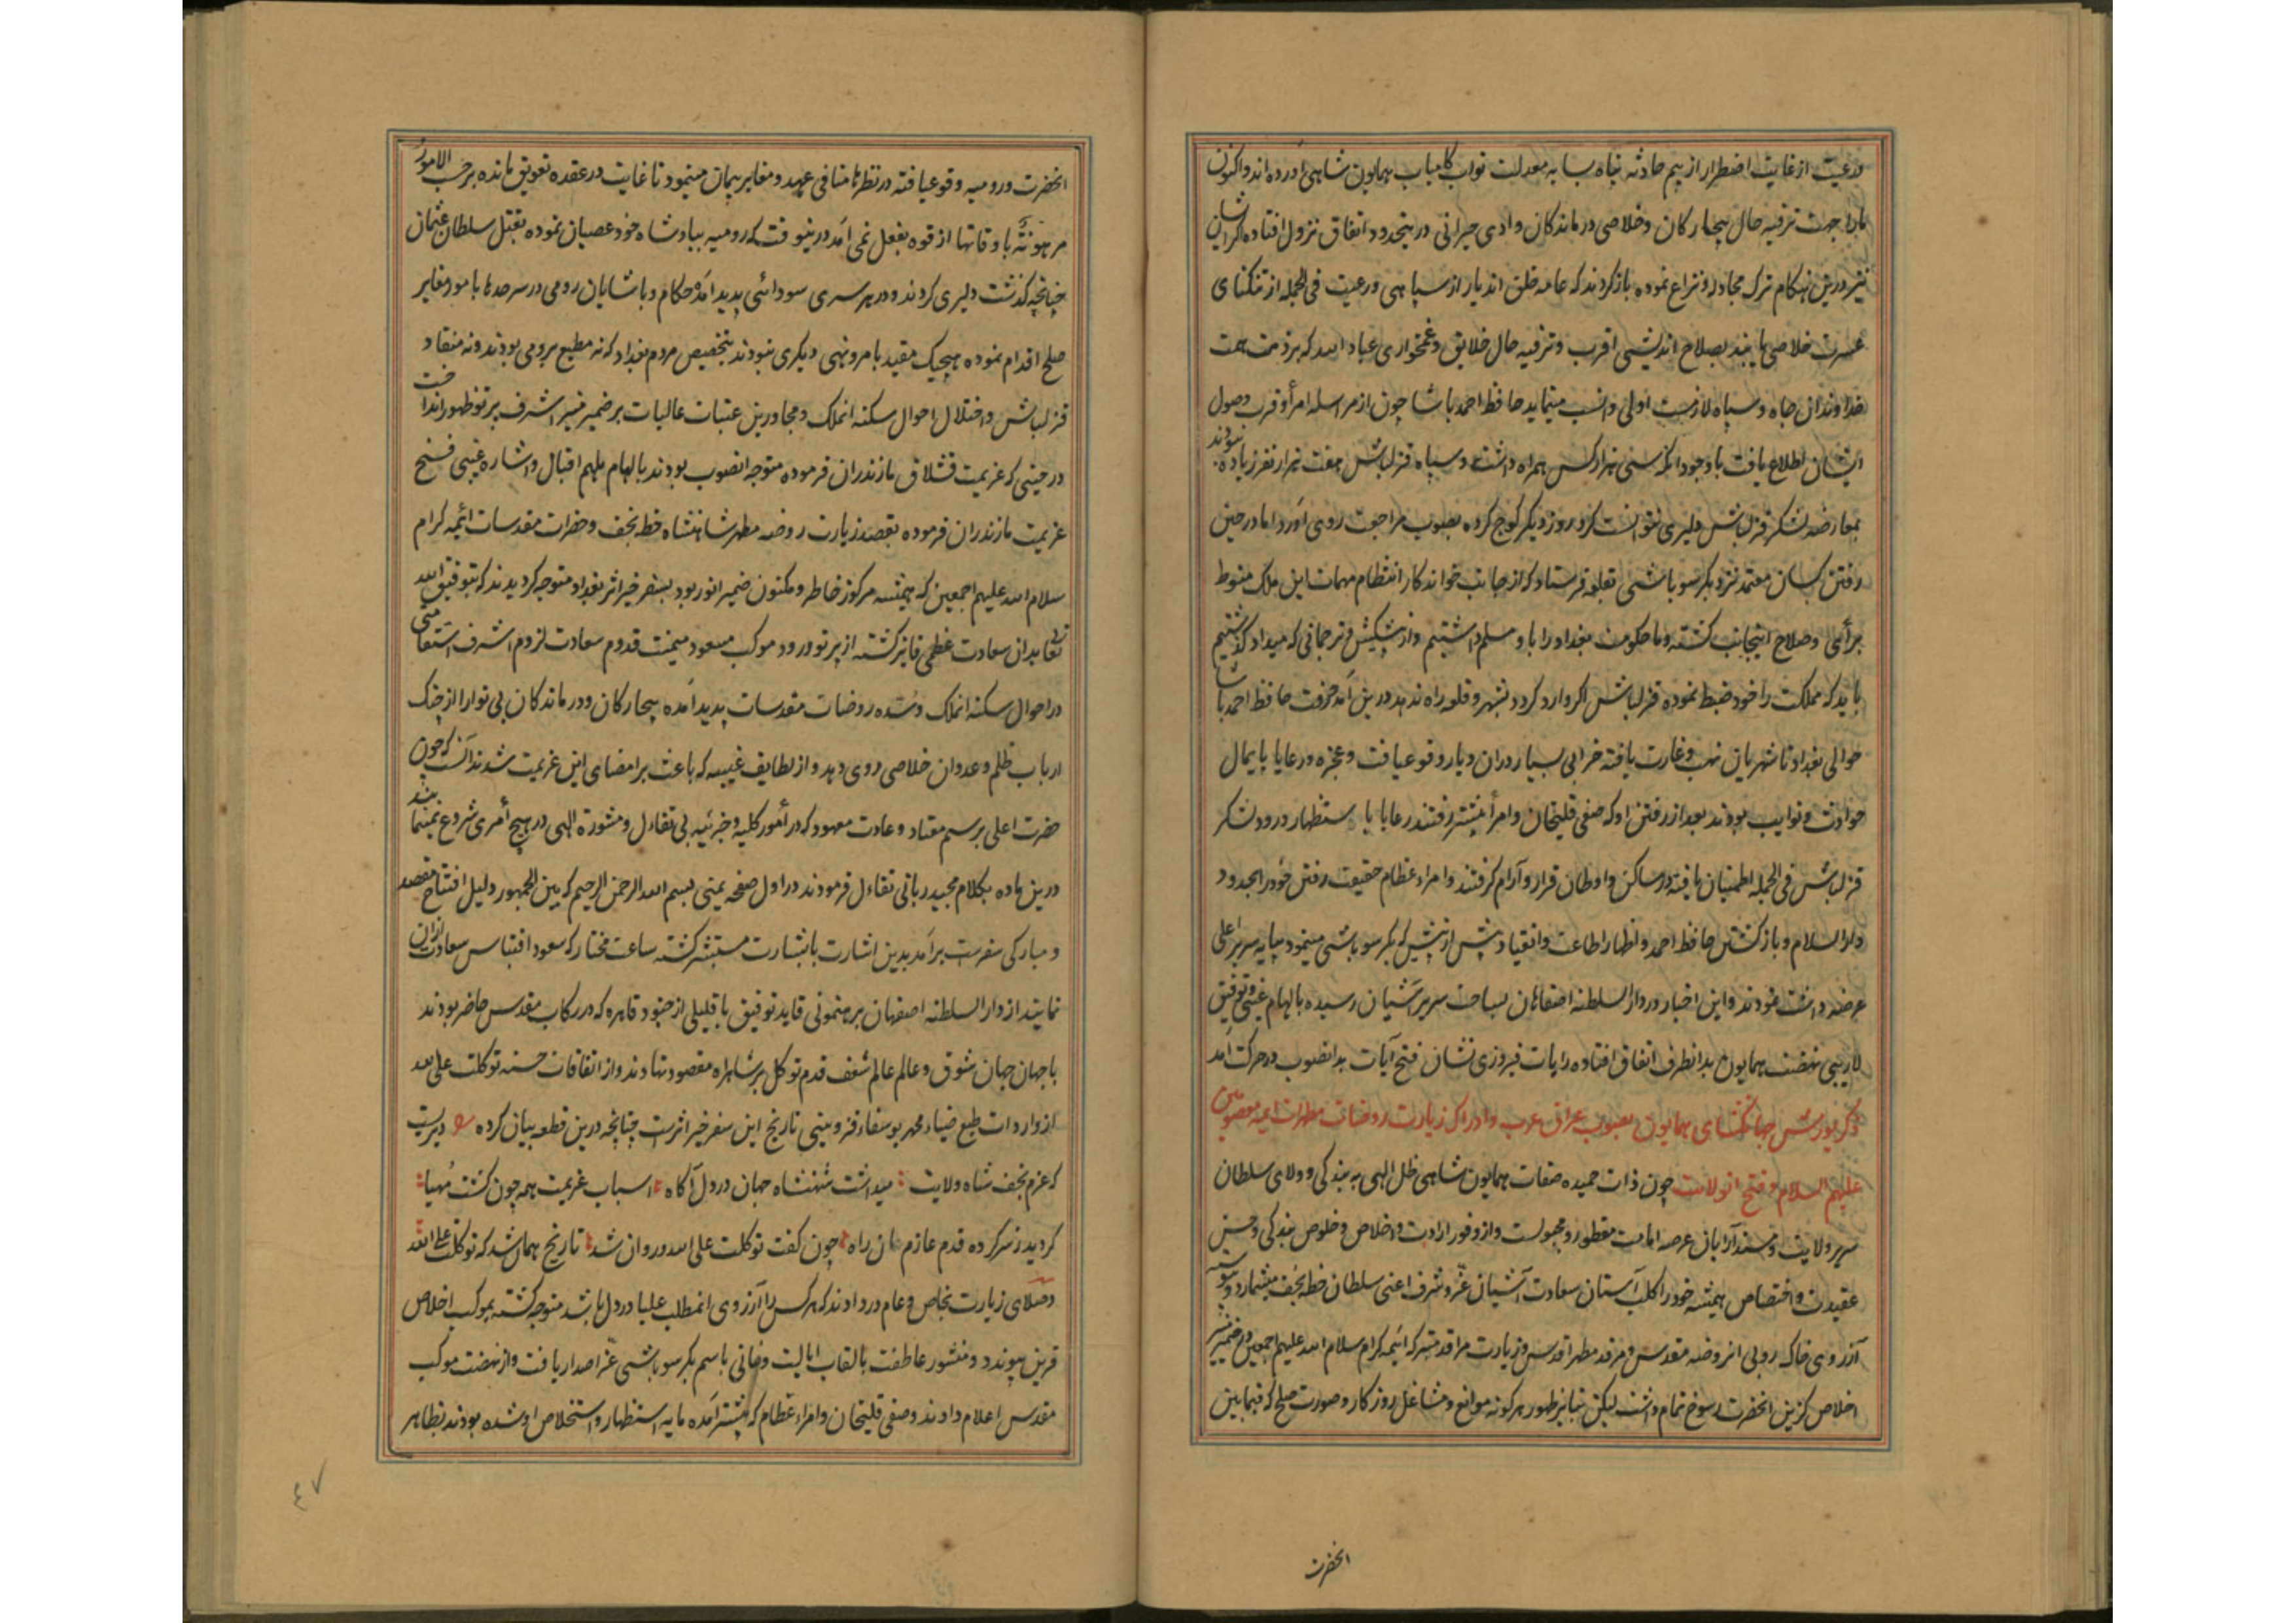 ورعیت از غایت اضطرار از بیم حادثه پناه بسایه معدلت نواب کامیاب همایون شاهی آورده‌اند و اکنون
مارا جهت ترفیه حال بیچارگان و خلاصی درماندکان وادی حیرانی درینحدود اتفاق نزول افتاده اگر ایشان
نیز درین هنکام ترک مجادله و نزاع نموده بازکردند که عامه خلق اندیار از سپاهی ورعیت فی الجمله از تنکنای
عسرت خلاصی یابند بصلاح اندیشی اقرب و ترفیه حال خلایق و غمخواری عباد الله که بر ذمت همت
خداوندان جاه و سپاه لازمست اولی و انسب مینماید حافظ احمد پاشا چون از مراسله امرأ و قرب وصول
ایشان اطلاع یافت با وجود انکه سی هزار کس همراه داشت و سپاه قزلباش هفت هزار نفر زیاده نبودند
بمعارضه لشکر قزلباش دلیری نتوانست کرد روز دیگر کوچ کرده بصوب مراجعت روی آورد اما در حین
رفتن کسان معتمد نزد بکر سوباشی بقلعه فرستاد که از جانب خواندکار انتظام مهمات این ملک منوط
برأی و صلاح اینجانب کشته و ما حکومت بغداد را باو مسلم داشتیم و از پیشکش و ترجمانی که میداد کذشتیم
باید که مملکت را خود ضبط نموده قزلباش اکر وارد کردد بشهر و قلعه راه ندهد درین آمد و رفت حافظ احمد پاشا
حوالی بغداد تا شهربان نهب و غارت یافته خرابی بسیار دران دیار وقوع یافت و عجزه و رعایا پایمال
حوادث و نوایب بودند بعد از رفتن او که صفی قلیخان و امرأ پیشتر رفتند رعایا با ستظهار ورود لشکر
قزلباش فی الجمله اطمینان یافته در مساکن و اوطان قرار و آرام کرفتند و امراء عظام حقیقت رفتن خود را بحدود
دارالسلام و بازکشتن حافظ احمد و اظهار اطاعت و انقیاد پیش از پیش که بکر سوباشی مینمود بپایه سریر اعلی
عرضه داشت نمودند و این اخبار در دارالسلطنه اصفاهان بساحت سریر آشیان رسیده بالهام غیبی و توفیق
لاریبی نهضت همایون بدانطرف اتفاق افتاده رایات فیروزی نشان فتح آیات بدانصوب در حرکت آمد
ذکر یورش جهانکشای همایون بصوب عراق عرب و ادراک زیارت روضات مطهرات ایمه معصومین
علیهم السلام و فتح انولایت چون ذات حمیده صفات همایون شاهی ظل الهی به بندکی و ولای سلطان
سریر ولایت و مسند آرایان عرصه امامت مفطور و مجبولست و از وفور ارادت و اخلاص و خلوص بندکی و حسن
عقیدت و اختصاص همیشه خود را کلب آستان سعادت آشیان عزّ و شرف اعنی سلطان خطه نجف میشمارد و پیوسته
آرزوی خاک روبی انروضه مقدس و مرقد مطهر اقدس و زیارت مراقد متبرکه ائیمه کرام سلام الله علیهم اجمعین در ضمیر منیر
اخلاص کزین انحضرت رسوخ تمام داشت لیکن بنابر ظهور هر کونه موانع و مشاغل روزکار و صورت صلح که فیمابین
انحضرت
انحضرت و رومیه وقوع یافته در نظرها منافی عهد و مغایر پیمان مینمود تا غایت در عقده تعویق مانده برحسب الامور
مرهونةٌ باوقاتها از قوه بفعل نمی آمد درینوقت که رومیه بپادشاه خود عصیان نموده بقتل سلطان عثمان
چنانچه کذشت دلیری کردند و در هر سری سودائی پدید آمده حکام و پاشایان رومی در سرحدها بامور مغایر
صلح اقدام نموده هیچیک مقید بامر و نهی دیکری نبودند بتخصیص مردم بغداد که نه مطیع رومی بودند و نه منقاد
قزلباش و اختلال احوال سکنه انملک و مجاورین عتبات عالیات بر ضمیر منیر اشرف پرتو ظهور انداخت
در حینی که عزیمت قشلاق مازندران فرموده متوجه انصوب بودند بالهام ملهم اقبال و اشاره غیبی فسخ
عزیمت مازندران فرموده بقصد زیارت روضه مطهر شاهنشاه خطه نجف و حضرات مقدسات ائمه کرام
سلام الله علیهم اجمعین که همیشه مرکوز خاطر و مکنون ضمیر انور بود بسفر خیر اثر بغداد متوجه کردیدند که بتوفیق الله
تعالی بدان سعادت عظمی فایز کشته از پرتو ورود موکب مسعود میمنت قدوم سعادت لزوم اشرف استقامتی
در احوال سکنه انملک و سده روضات مقدسات پدید آمده بیچارکان و درماندکان بی نوا را از چنک
ارباب ظلم و عدوان خلاصی روی دهد و از لطایف غیبیه که باعث بر امضای این عزیمت شد ندآنست که چون
حضرت اعلی برسم معتاد و عادت معهود که در أمور کلیه و جزئیه بی تفاءل و مشورة الهی در هیچ أمری شروع نمینماید
درین ماده بکلام مجید ربانی تفاءل فرمودند در اول صفحه یمنی بسم الله الرحمن الرحیم که بین الجمهور دلیل افتتاح مقصد
و مبارکی سفرست برآمد بدین اشارت بابشارت مستبشر کشته ساعت مختار که سعود اقتباس سعادت ازان
نمایند از دارالسلطنه اصفهان برهنمونی قاید توفیق با قلیلی از جنود قاهره که در رکاب مقدس حاضر بودند
با جهان جهان شوق و عالم عالم شعف قدم توکل بر شاهراه مقصود نهادند و از اتفاقات حسنه توکلت علی الله
از واردات طبع ضیاء محمد یوسفاء قزوینی تاریخ این سفر خیر اثرست چنانچه درین قطعه بیان کرده دیریست
که عزم نجف شاه ولایت میداشت شهنشاه جهان در دل آکاه اسباب عزیمت همه چون کشت مُهیا
کردید ز سر کرده قدم عازم ان راه چون کفت توکلت علی الله و روان شد تاریخ همان شد که توکلت علی الله
و صلای زیارت بخاص و عام در دادند که هر کس را آرزوی انمطلب علیا در دل باشد متوجه کشته بموکب اخلاص
قرین پیوندد و منشور عاطفت بالقاب ایالت و خانی باسم بکر سوباشی عزّ اصدار یافت و از نهضت موکب
مقدس اعلام دادند و صفی قلیخان و امراء عظام که پیشتر آمده مایه استظهار و استخلاص او شده بودند بظاهر
٤٧